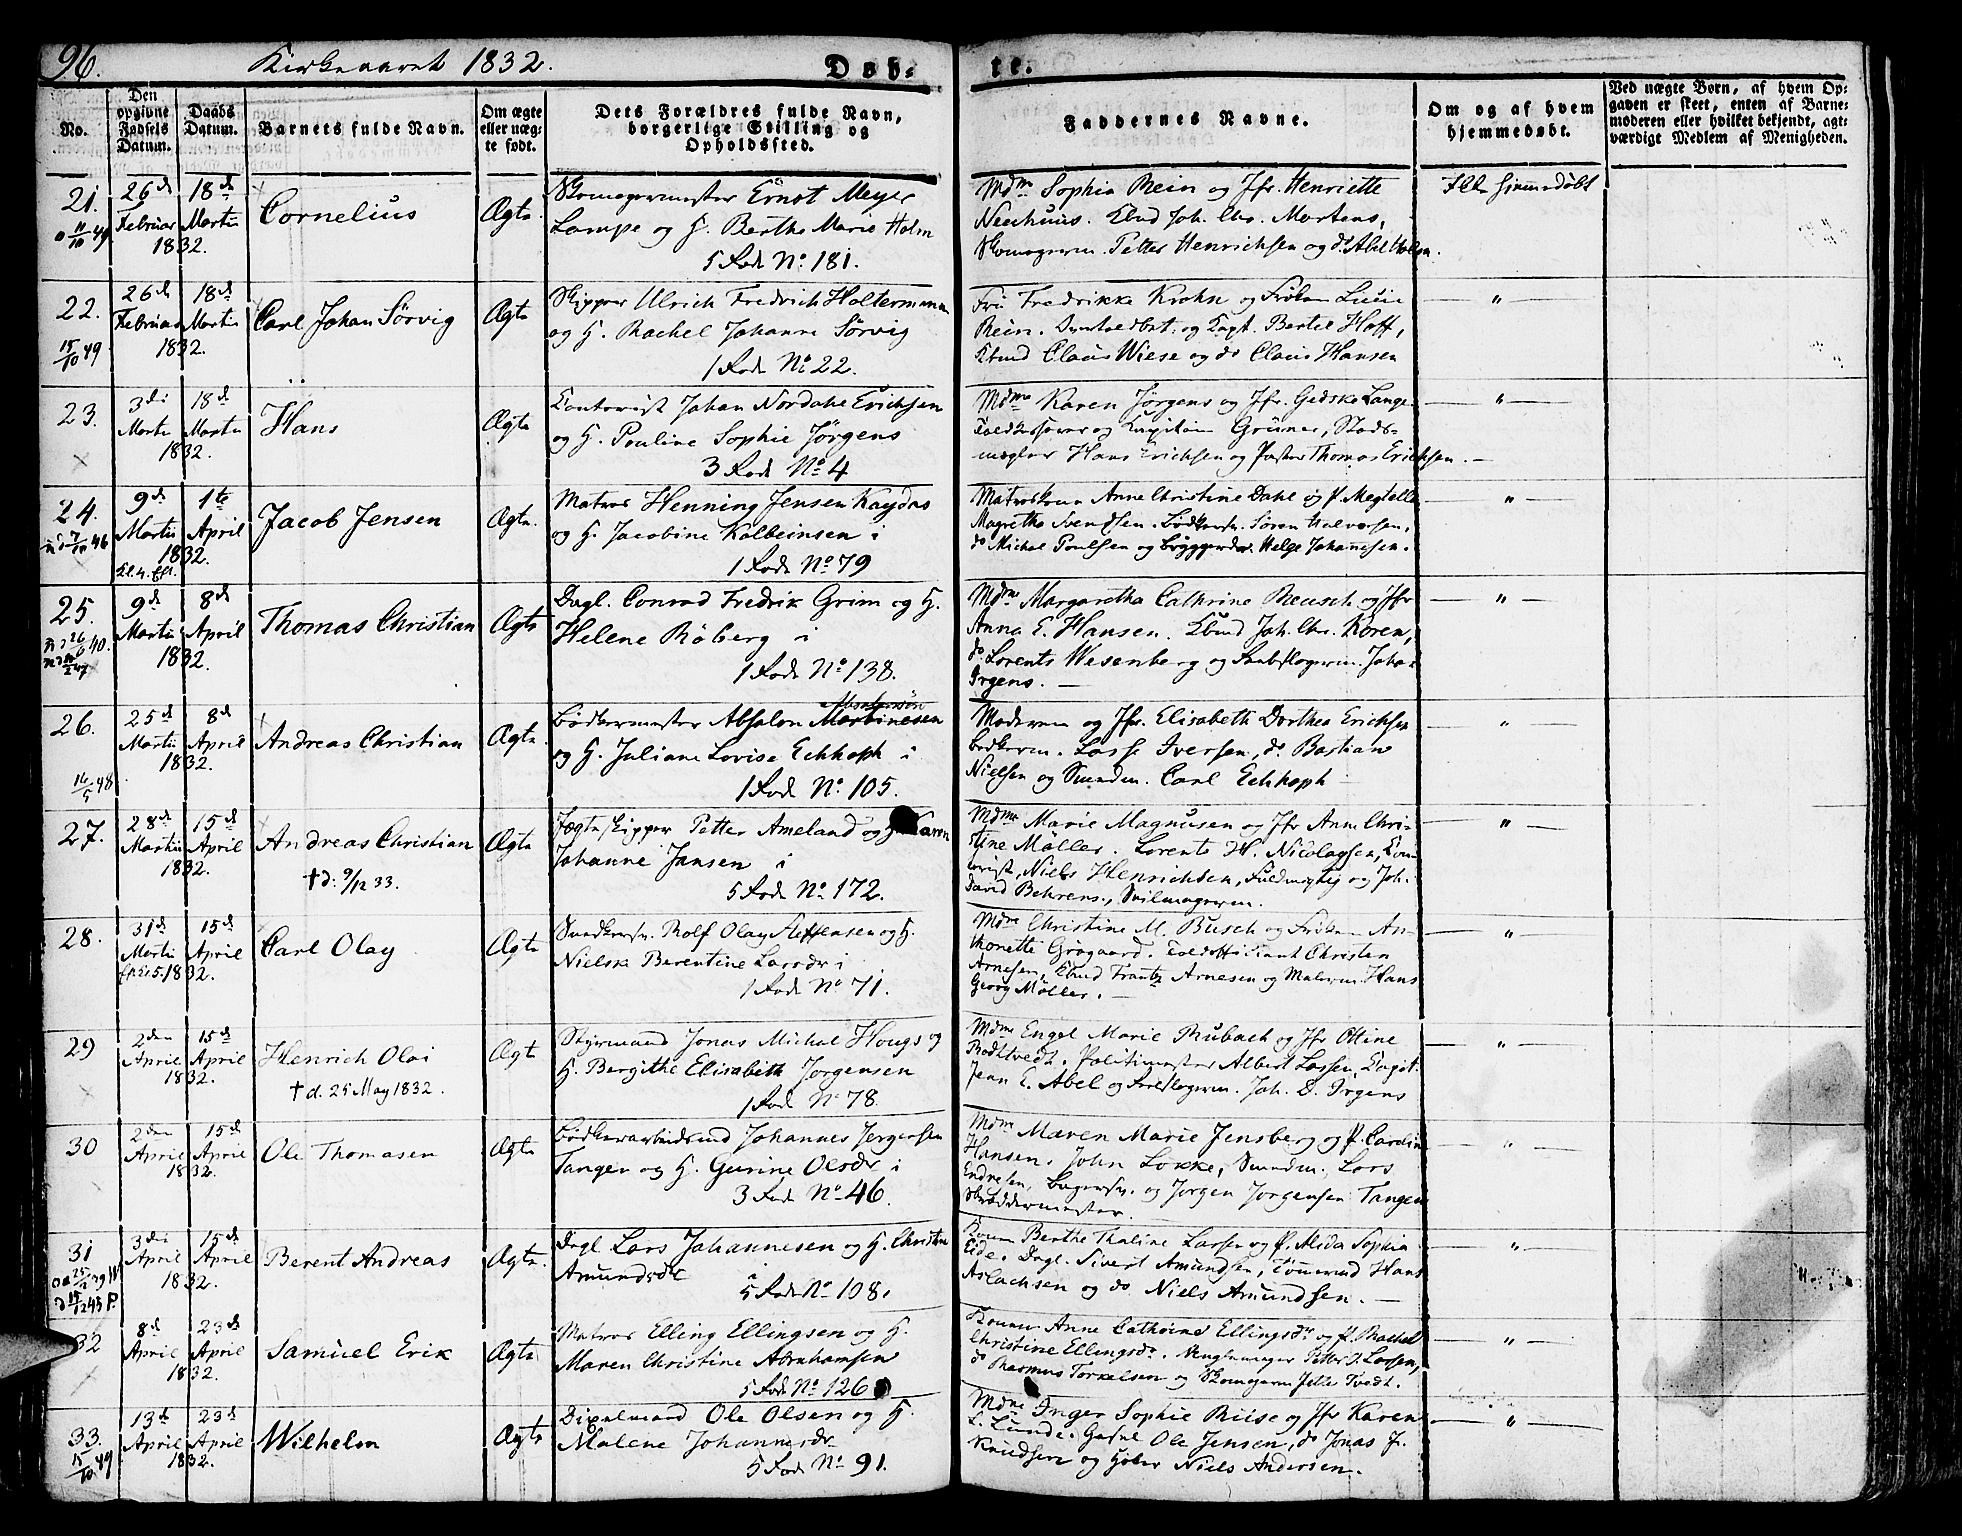 96. Kirkeaaret 1832. Døb- te.
No.
Den opgivne Fødsels Datum.
Daabs Datum.
Barnets fulde Navn.
Om ægte eller uæg- te født.
Dets Forældres fulde Navn, borgerlige Stilling og Opholdssted.
Faddernes Navne.
Om og af hvem hjemmedøbt.
Ved uægte Børn, af hvem Op- gaven er skeet, enten af Barne- moderen eller hvilket bekjendt, agt- værdigt Medlem af Menigheden.
21.
26de Februar 1832.
18de Martii
Cornelius
Ægte
Skomagermester Ernst Meyer
Lampe og H. Berthe Marie Holm
5 Rode No 181.
Mdme Sophia Rein og Jfr. Henriette
Neehuus. Kbmd Joh. Chr. Mortens,
Skomagerm. Petter Henrichsen og do Abel Holm.
Ikke hjemmedøbt
22.
15/10 49
26de Februar 1832.
18de Martii
Carl Johan Sörvig
Ægte
Skipper Ulrich Fredrich Holtermann
og H. Rachel Johanne Sörvig
1 Rode No 22.
Fru Fredrikke Krohn og Frøken Livie
Rein. og Capt. Bertel Hoff,
Kbmd Claus Wiese og do Claus Hansen
23.
3die Martii 1832.
18de Martii
Hans
Ægte
Contorist Johan Nordahl Erichsen
og H. Pouline Sophie Jørgens
3 Rode No 4
Mdme Karen Jørgens og Jfr. Gedske Lange
Toldkasserer og Kapitain Grüner, Stads-
mægler Hans Erichsen og Pastor Thomas Erichsen.
24.
9de Martii 1832.
1te April
Jacob Jensen
Ægte
Matros Henning Jensen Kaydas
og H. Jacobine Kolbeinsen i
1 Rode No 79
Matroskone Anne Christine Dahl og P. Megtelle
Magrethe Svendsen. Bødkersv. Søren Halvorsen,
do Michel Poulsen og Bryggerdr. Helge Johannesen.
25.
9de Martii 1832.
8de April
Thomas Christian
Ægte
Dagl. Conrad Fredrik Grim og H.
Helene Röberg i
1 Rode No 138.
Mdme Margaretha Cathrine Reusch og Jfr
Anna E. Hansen. Kbmd Joh. Chr. Koren,
do Lorents Wesenberg og Joh.
Irgens.
26.
16/5 48
25de Martii 1832.
8de April
Andreas Christian
Ægte
Absalonsön
Bødkermester Absalon Martinesen
og H. Juliane Lovise Echhoph i
1 Rode No 105.
Moderen og Jfr. Elisabeth Dorthea Erichsen
Bødkerm. Lasse Iversen, do Bastian
Nielsen og Carl Echhoph
27.
28de Martii 1832.
15de April
Andreas Christian
† d: 9/12 33.
Ægte
Jægteskipper Petter Ameland og H. Karen
Johanne Jansen i
5 Rode No 172.
Mdme Marie Magnusen og Jfr Anne Chri-
stine Möller. Lorents H. Nicolaysen, Con-
torist, Niels Henrichsen, Fuldmægtig og Joh.
David Behrens, Seilmagerm.
28.
31de Martii 1832.
15de April
Carl Olay
Ægte
Snedkersv. Rolf Olay Steffensen og H.
Nielske Berentine Larsdr i
1 Rode No 71.
Mdme Christine M. Busch og Frøken An-
thonette Grøgaard. Toldofficiant Christen
Arnesen, Kbmd Frantz Arnesen og Malerm. Hans
Georg Möller.
29
2den April 1832.
15de April
Henrich Olai
† d. 25 May 1832.
Ægte
Styrmand Jonas Michal Hougs og
H. Bergithe Elisabeth Jørgensen
1 Rode No 78
Mdme Engel Marie Rubach og Jfr Ottine
Bodtvedt. Politimester Albert Lassen, Capit.
Jean E. Abel og Joh. D. Irgens
30
2den April 1832.
15de April
Ole Thomasen
Ægte
Bødkerarbeidsmd Johannes Jørgensen
Tangen og H. Gurine Olsdr i
3 Rode No 46.
Mdme Maren Marie Jensberg og P. Caroline
Hansen. John Lokke, Lars
Endresen, Bagersv. og Jørgen Jørgensen Tangen
Skræddermester.
31
3die April 1832.
15de April
Berent Andreas
Ægte
Dagl Lars Johannesen og H. Christin
Amundsdr i
5 Rode No 108.
Konen Berthe Thaline Larsen og P. Alida Sophia
Eide. Dagl. Sivert Amundsen, Tømmermd Hans
Aslachsen og do Niels Amundsen.
32
8de April 1832.
23de April
Samuel Erik
Ægte
Matros Elling Ellingsen og H.
Maren Christine Abrahamsen
5 Rode No 126
Konen Anne Cathrine Ellingsdr og P. Rachel
Christine Ellingsdr. Petter J. Larsen,
do Rasmus Torkelsen og Skomagerm Peter Tvedt.
33.
15/10 49
13de April 1832.
23de April
Wilhelm
Ægte
Ole Olsen og H.
Malene Johannesdr
5 Rode No 91.
Mdme Inger Sophie Riise og Jfr Karen
L. Lunde. Ole Jensen, do Jonas J.
Knudsen og Niels Andersen.